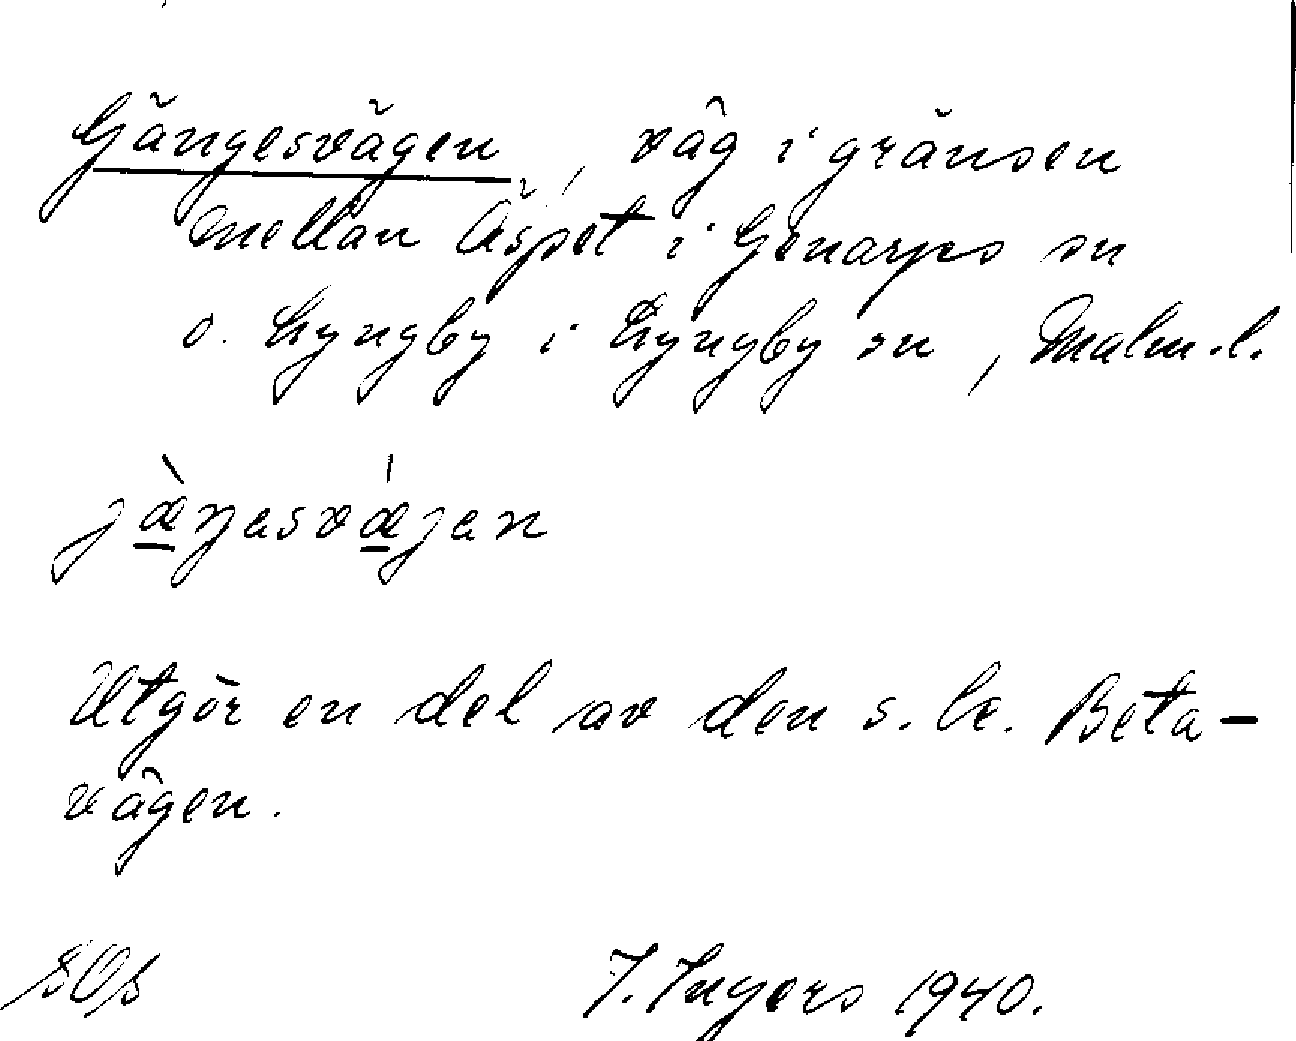 Gängesvägen, väg i gränsen
mellan Äspet i Genarps sn
o. Lyngby i Lyngby sn, Malm.l.
jæ̀ŋasvǽjan
Utgör en del av den s.k. Beta-
vägen.
I. Ingers 1940.